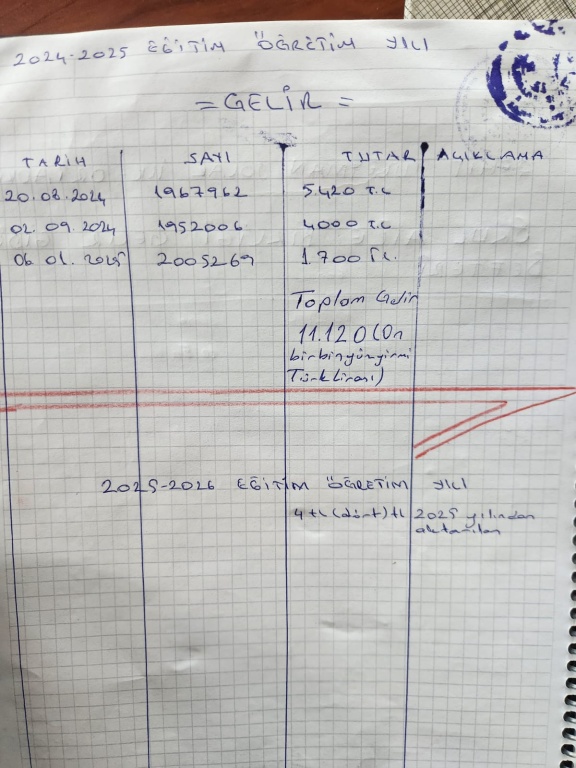 2024-2025 EĞİTİM ÖĞRETİM YILI
= GELİR =
TARİH SAYI TUTAR AÇIKLAMA
20.08.2024 1967962 5.420 T.L
02.09.2024 1952006 4000 T.L
06.01.2025 2005269 1.700 TL.
Toplam Gelir
11.120 (On
birbinyüzyirmi
Türklirası)
2025-2026 EĞİTİM ÖĞRETİM YILI
4 tl (dört) tl 2025 yılından
aktarılan